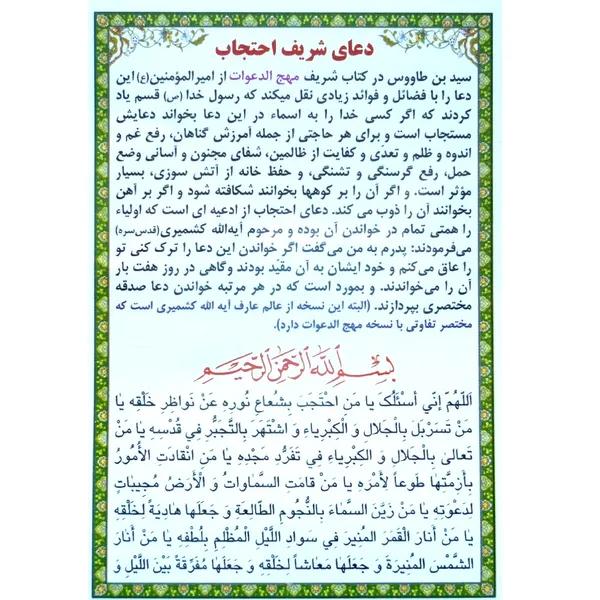 دعای شریف احتجاب
سید بن طاووس در کتاب شریف مهج الدعوات از امیرالمؤمنین(ع) این
دعا را با فضائل و فوائد زیادی نقل میکند که رسول خدا (ص) قسم یاد
کردند که اگر کسی خدا را به اسماء در این دعا بخواند دعایش
مستجاب است و برای هر حاجتی از جمله آمرزش گناهان، رفع غم و
اندوه و ظلم و تعدی و کفایت از ظالمین، شفای مجنون و آسانی وضع
حمل، رفع گرسنگی و تشنگی، و حفظ خانه از آتش سوزی، بسیار
مؤثر است. و اگر آن را بر کوهها بخوانند شکافته شود و اگر بر آهن
بخوانند آن را ذوب می کند. دعای احتجاب از ادعیه ای است که اولیاء
را همتی تمام در خواندن آن بوده و مرحوم آیه‌الله کشمیری(قدس‌سره)
می‌فرمودند: پدرم به من می‌گفت اگر خواندن این دعا را ترک کنی تو
را عاق می‌کنم و خود ایشان به آن مقیّد بودند وگاهی در روز هفت بار
آن را می‌خواندند. و بمورد است که در هر مرتبه خواندن دعا صدقه
مختصری بپردازند. (البته این نسخه از عالم عارف آیه الله کشمیری است که
مختصر تفاوتی با نسخه مهج الدعوات دارد).
بِسْمِ ٱللَّهِ ٱلرَّحْمَنِ ٱلرَّحِیمِ
اَللّهُمَّ إنّي أسْئَلُکَ یا مَنِ احْتَجَبَ بِشُعاعِ نورِهِ عَنْ نَواظِرِ خَلْقِهِ یا
مَنْ تَسَرْبَلَ بِالْجَلالِ وَ الْکِبْرِیاءِ وَ اشْتَهَرَ بِالتَّجَبُّرِ في قُدْسِهِ یا مَنْ
تَعالیٰ بِالْجَلالِ وَ الْکِبْرِیاءِ في تَفَرُّدِ مَجْدِهِ یا مَنِ انْقادَتِ الْأُمُورُ
بِأَزِمَّتِها طَوعاً لِأَمْرِهِ یا مَنْ قامَتِ السَّماواتُ وَ الْأَرضُ مُجیباتٍ
لِدَعْوَتِهِ یا مَنْ زَیَّنَ السَّماءَ بِالنُّجُومِ الطالِعَةِ وَ جَعَلَها هادِیَةً لِخَلْقِهِ
یا مَنْ أنارَ الْقَمَرَ الْمُنیرَ في سَوادِ اللَّیْلِ الْمُظْلِمِ بِلُطْفِهِ یا مَنْ أنارَ
الشَّمْسَ الْمُنیرَةَ وَ جَعَلَها مَعاشاً لِخَلْقِهِ وَ جَعَلَها مُفَرِّقَةً بَیْنَ اللَّیْلِ وَ